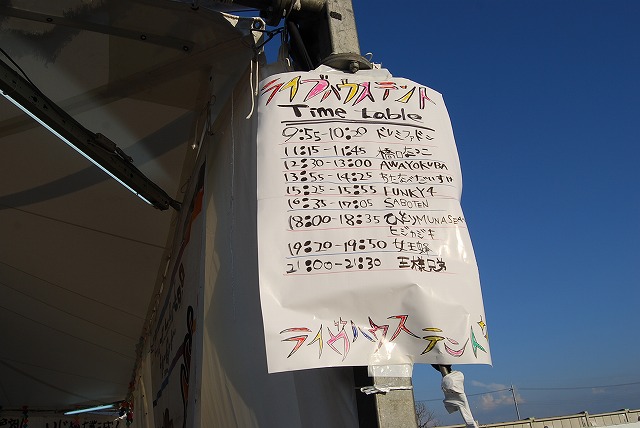 ライブハウステント
Time table
9:55-10:30 ドレミファドン
11:15-11:45 橋口なつこ
12:30-13:00 AWAYOKUBA
13:55-14:25
15:25-15:55 FUNKY4
16:35-17:05 SABOTEN
18:00-18:35 ひとりMUNASEA
ヒジカジキ
19:20-19:50 女王蜂
21:00-21:30 王様兄弟
ライヴハウステント